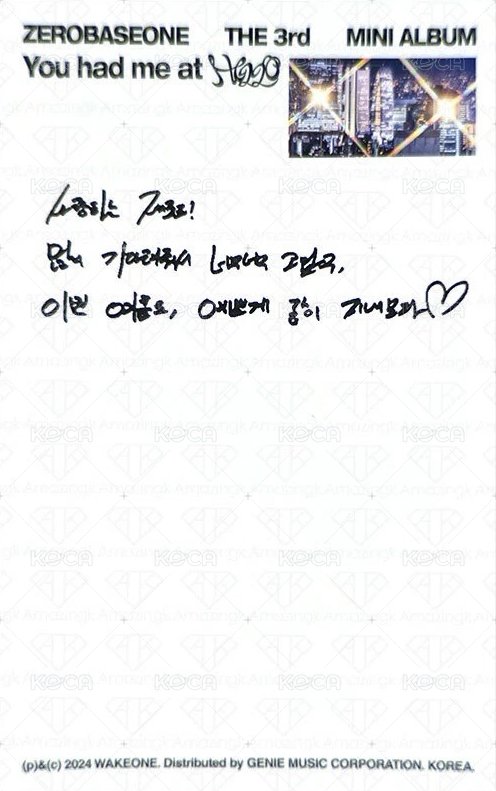 ZEROBASEONE THE 3rd MINI ALBUM
You had me at Hello
사랑하는 제로즈!
기다려줘서 너무너무 고맙구,
이번 여름도, 예쁘게 같이 지내보자♡
KOCA
(p)&(c) 2024 WAKEONE. Distributed by GENIE MUSIC CORPORATION. KOREA.